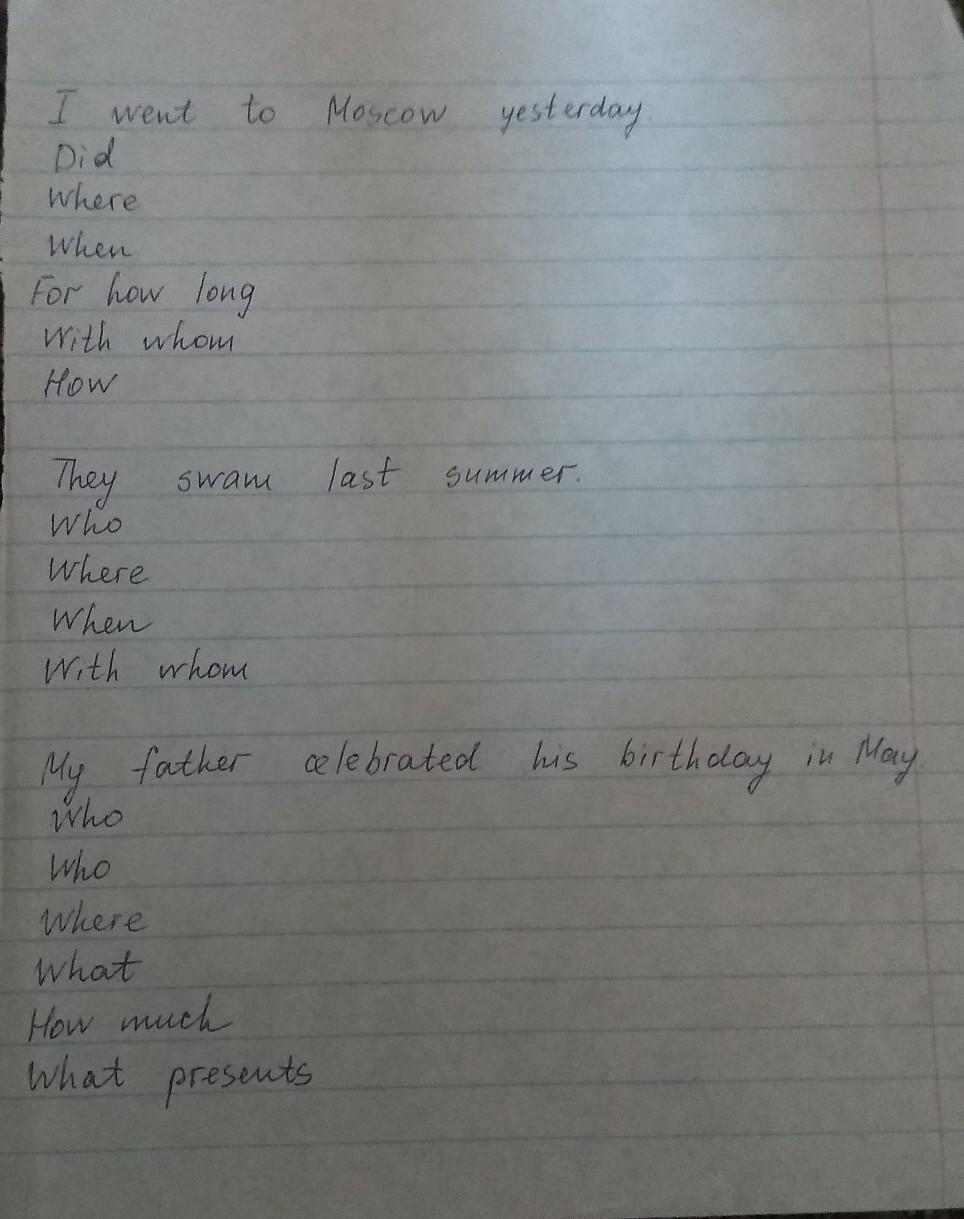 I went to Moscow yesterday.
Did
Where
When
For how long
With whom
How
They swam last summer.
Who
Where
When
With whom
My father celebrated his birthday in May.
Who
Who
Where
What
How much
What presents